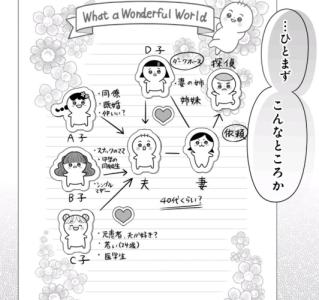 What a Wonderful World
…ひとまず
こんなところか
D子
ダークホース
探偵
・妻の姉
姉妹
・同僚
・既婚
・仲いい?
A子
・スナックのママ
・中学の
同級生
・シングル
マザー
B子
夫
妻
依頼
40代くらい?
C子
・元患者、夫が好き?
・若い(24歳)
・医学生